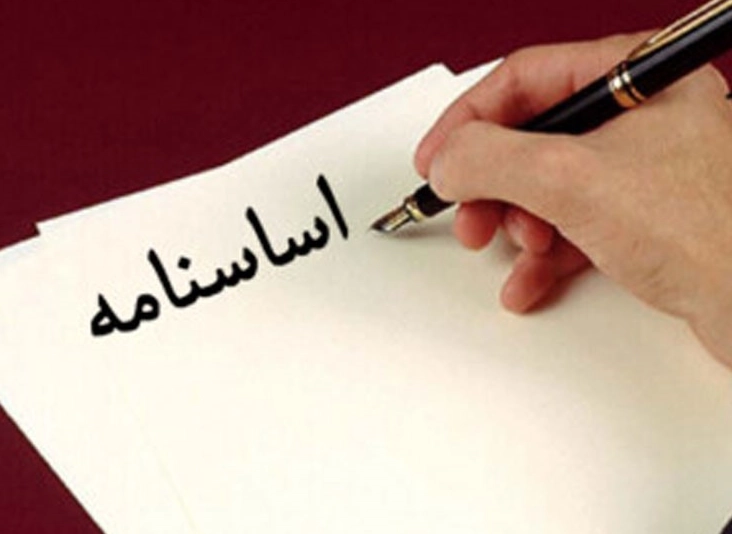 اساسنامه